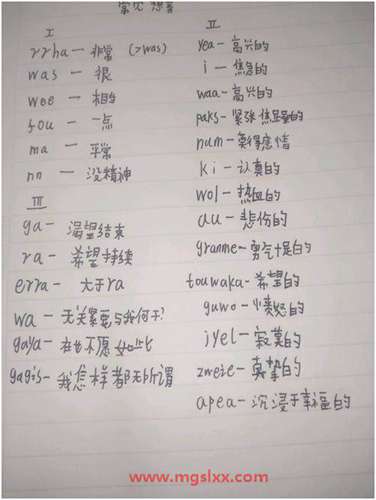 常见 想音
I
rrha — 非常 (>was)
was — 很
wee — 相当
fou — 一点
ma — 平常
nn — 没精神
III
ga — 渴望结束
ra — 希望持续
erra — 大于ra
wa — 无关紧要与我何干?
gaya — 在也不愿如此
gagis — 我怎样都无所谓
II
yea - 高兴的
i - 焦急的
waa - 高兴的
paks - 紧张 的
num - 莫得感情
ki - 认真的
wol - 热血的
au - 悲伤的
granme - 勇气十足的
touwaka - 希望的
guwo - 愤怒的
iyel - 寂寞的
zweie - 真挚的
apea - 沉浸于幸福的
www.mgslxx.com